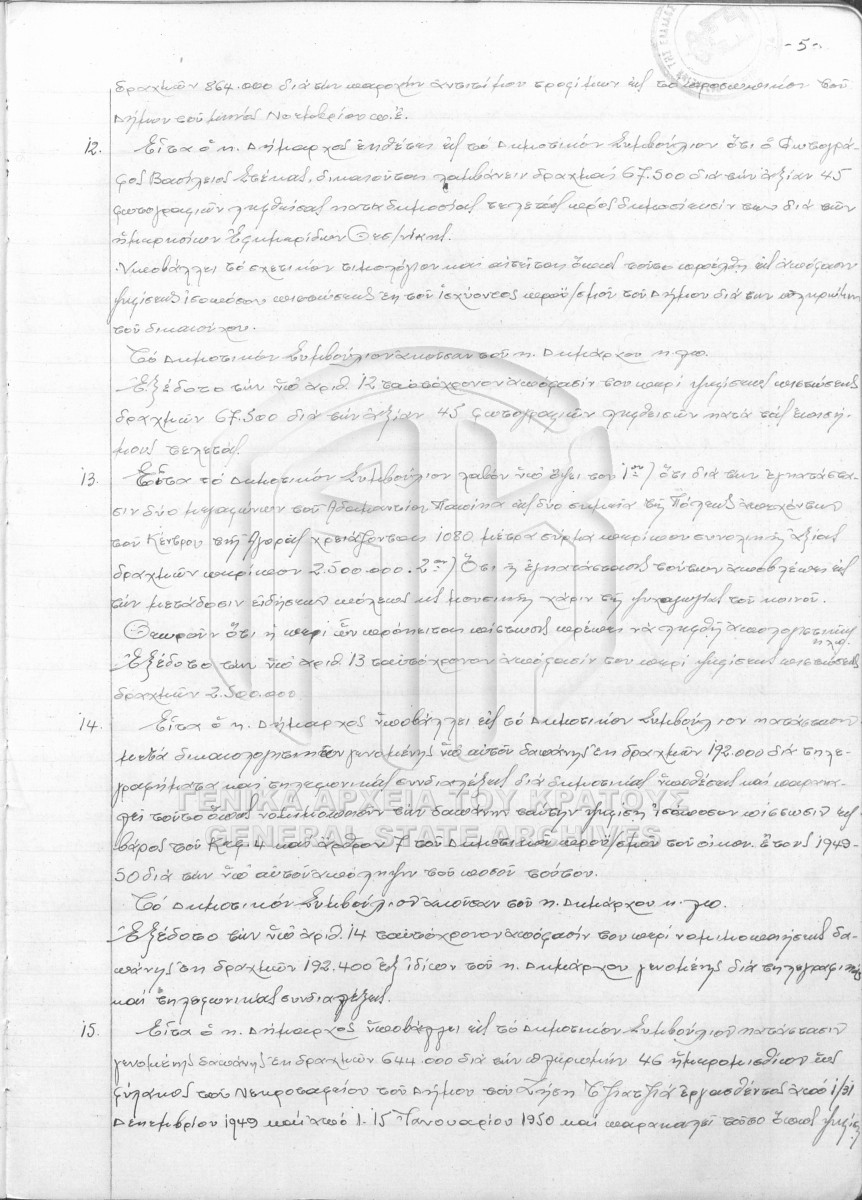 -5-
δραχμῶν 864.000 διὰ τὴν παροχὴν ἀντιτίμου τροφίμων εἰς τὸ προσωπικὸν τοῦ
Δήμου τοῦ μηνὸς Νοεμβρίου π.ἔ.
12. Εἶτα ὁ κ. Δήμαρχος ἐκθέτει εἰς τὸ Δημοτικὸν Συμβούλιον ὅτι ὁ Φωτογρά-
φος Βασίλειος Στέκας, δικαιοῦται λαμβάνειν δραχμὰς 67.500 διὰ τὴν ἀξίαν 45
φωτογραφιῶν ληφθείσας κατὰ δημοσίας τελετὰς πρὸς δημοσίευσίν των διὰ τῶν
ἡμερησίων Ἐφημερίδων Θεσ/νίκης.
Ὑποβάλλει τὸ σχετικὸν τιμολόγιον καὶ αἰτεῖται ὅπως τοῦτο προέλθῃ εἰς ἀπόφασιν
ψηφίσεως ἰσοπόσου πιστώσεως ἐκ τοῦ ἰσχύοντος προϋ/σμοῦ τοῦ Δήμου διὰ τὴν πληρωμὴν
τοῦ δικαιούχου.
Τὸ Δημοτικὸν Συμβούλιον ἀκοῦσαν τοῦ κ. Δημάρχου κ.λπ.
Ἐξέδοτο τὴν ὑπ' ἀριθ. 12 ταυτόχρονον ἀπόφασίν του περὶ ψηφίσεως πιστώσεως
δραχμῶν 67.500 διὰ τὴν ἀξίαν 45 φωτογραφιῶν ληφθεισῶν κατὰ τὰς ἐπισή-
μους τελετάς.
13. Εἶτα τὸ Δημοτικὸν Συμβούλιον λαβὸν ὑπ' ὄψει του 1ον) ὅτι διὰ τὴν ἐγκατάστα-
σιν δύο μεγαφώνων τοῦ Ἀδαμαντίου Πασίκα εἰς δύο σημεῖα τῆς Πόλεως ἀπέχοντα
τοῦ Κέντρου τῆς Ἀγορᾶς χρειάζονται 1080 μέτρα σύρμα περίπου συνολικῆς ἀξίας
δραχμῶν περίπου 2.500.000. 2ον) Ὅτι ἡ ἐγκατάστασις τούτων ἀποβλέπει εἰς
τὴν μετάδοσιν εἰδήσεων πόλεως κὶ μουσικῆς χάριν τῆς ψυχαγωγίας τοῦ κοινοῦ.
Θεωροῦν ὅτι ἡ περὶ ὧν πρόκειται πίστωσις πρέπει νὰ ληφθῇ ἀπολογιστικῶς
κ.λ.π.
Ἐξέδοτο τὴν ὑπ' ἀριθ. 13 ταυτόχρονον ἀπόφασίν του περὶ ψηφίσεως πιστώσεως
δραχμῶν 2.500.000
14. Εἶτα ὁ κ. Δήμαρχος ὑποβάλλει εἰς τὸ Δημοτικὸν Συμβούλιον κατάστασιν
μετὰ δικαιολογητικῶν γενομένης ὑπ' αὐτοῦ δαπάνης ἐκ δραχμῶν 192.000 διὰ τηλε-
γραφήματα καὶ τηλεφωνικὰς συνδιαλέξεις διὰ δημοτικὰς ὑποθέσεις καὶ παρακα-
λεῖ τοῦτο ὅπως νομιμοποιοῦν τὴν δαπάνην ταύτην ψηφίσῃ ἰσόποσον πίστωσιν εἰς
βάρος τοῦ Κεφ. 4 καὶ ἄρθρου 7 τοῦ Δημοτικοῦ προϋ/σμοῦ τοῦ οἰκον. ἔτους 1949-
50 διὰ τὴν ὑπ' αὐτοῦ ἀπόληψιν τοῦ ποσοῦ τούτου.
Τὸ Δημοτικὸν Συμβούλιον ἀκοῦσαν τοῦ κ. Δημάρχου κ.λπ.
Ἐξέδοτο τὴν ὑπ' ἀριθ. 14 ταυτόχρονον ἀπόφασίν του περὶ νομιμοποιήσεως δα-
πάνης ἐκ δραχμῶν 192.400 ἐξ ἰδίων τοῦ κ. Δημάρχου γενομένης διὰ τηλεγραφικὰς
καὶ τηλεφωνικὰς συνδιαλέξεις.
15. Εἶτα ὁ κ. Δήμαρχος ὑποβάλλει εἰς τὸ Δημοτικὸν Συμβούλιον κατάστασιν
γενομένης δαπάνης ἐκ δραχμῶν 644.000 διὰ τὴν πληρωμὴν 46 ἡμερομισθίων ὡς
φύλακος τοῦ Νεκροταφείου τοῦ Δήμου τοῦ Ζήση Τζιατζιᾶ ἐργασθέντος ἀπὸ 1/31
Δεκεμβρίου 1949 καὶ ἀπὸ 1-15 Ἰανουαρίου 1950 καὶ παρακαλεῖ τοῦτο ὅπως ψηφίσῃ
ΓΕΝΙΚΑ ΑΡΧΕΙΑ ΤΟΥ ΚΡΑΤΟΥΣ
GENERAL STATE ARCHIVES